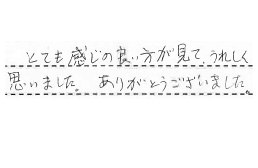 とても感じの良い方が見て、うれしく
思いました。ありがとうございました。